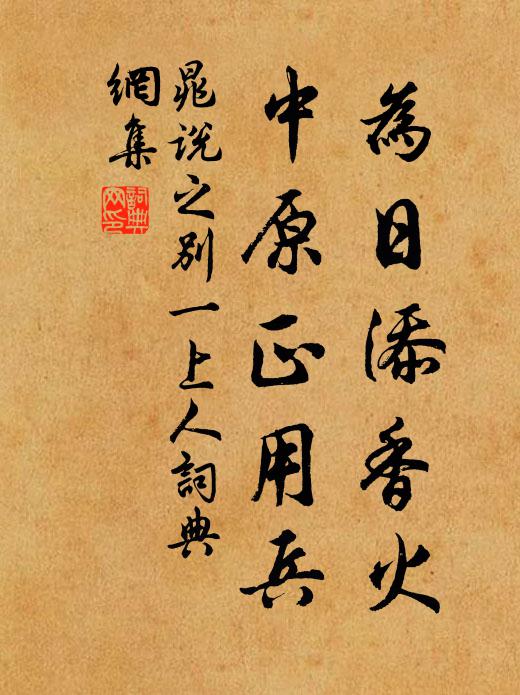 為日添香火
中原正用兵
晁說之別一上人詞典
網集
詞典
网印